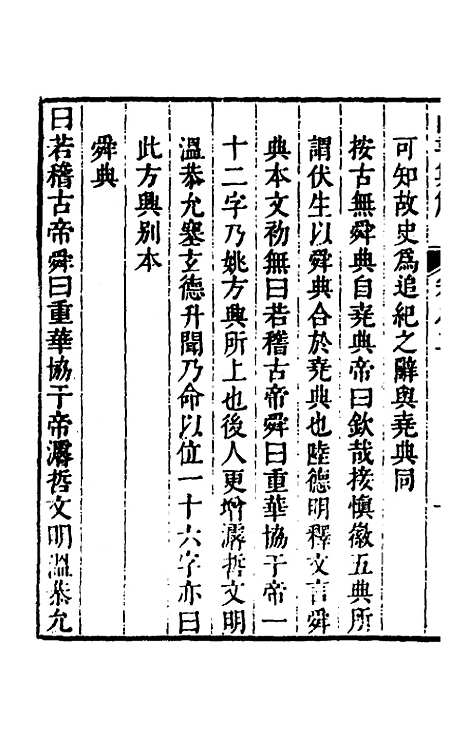 可知故史爲追紀之辭與堯典同
按古無舜典自堯典帝曰欽哉接愼徽五典所
謂伏生以舜典合於堯典也陸德明釋文言舜
典本文初無曰若稽古帝舜曰重華協于帝一
十二字乃姚方興所上也後人更增濬哲文明
溫恭允塞玄德升聞乃命以位一十六字亦曰
此方興別本
舜典
曰若稽古帝舜曰重華協于帝濬哲文明溫恭允